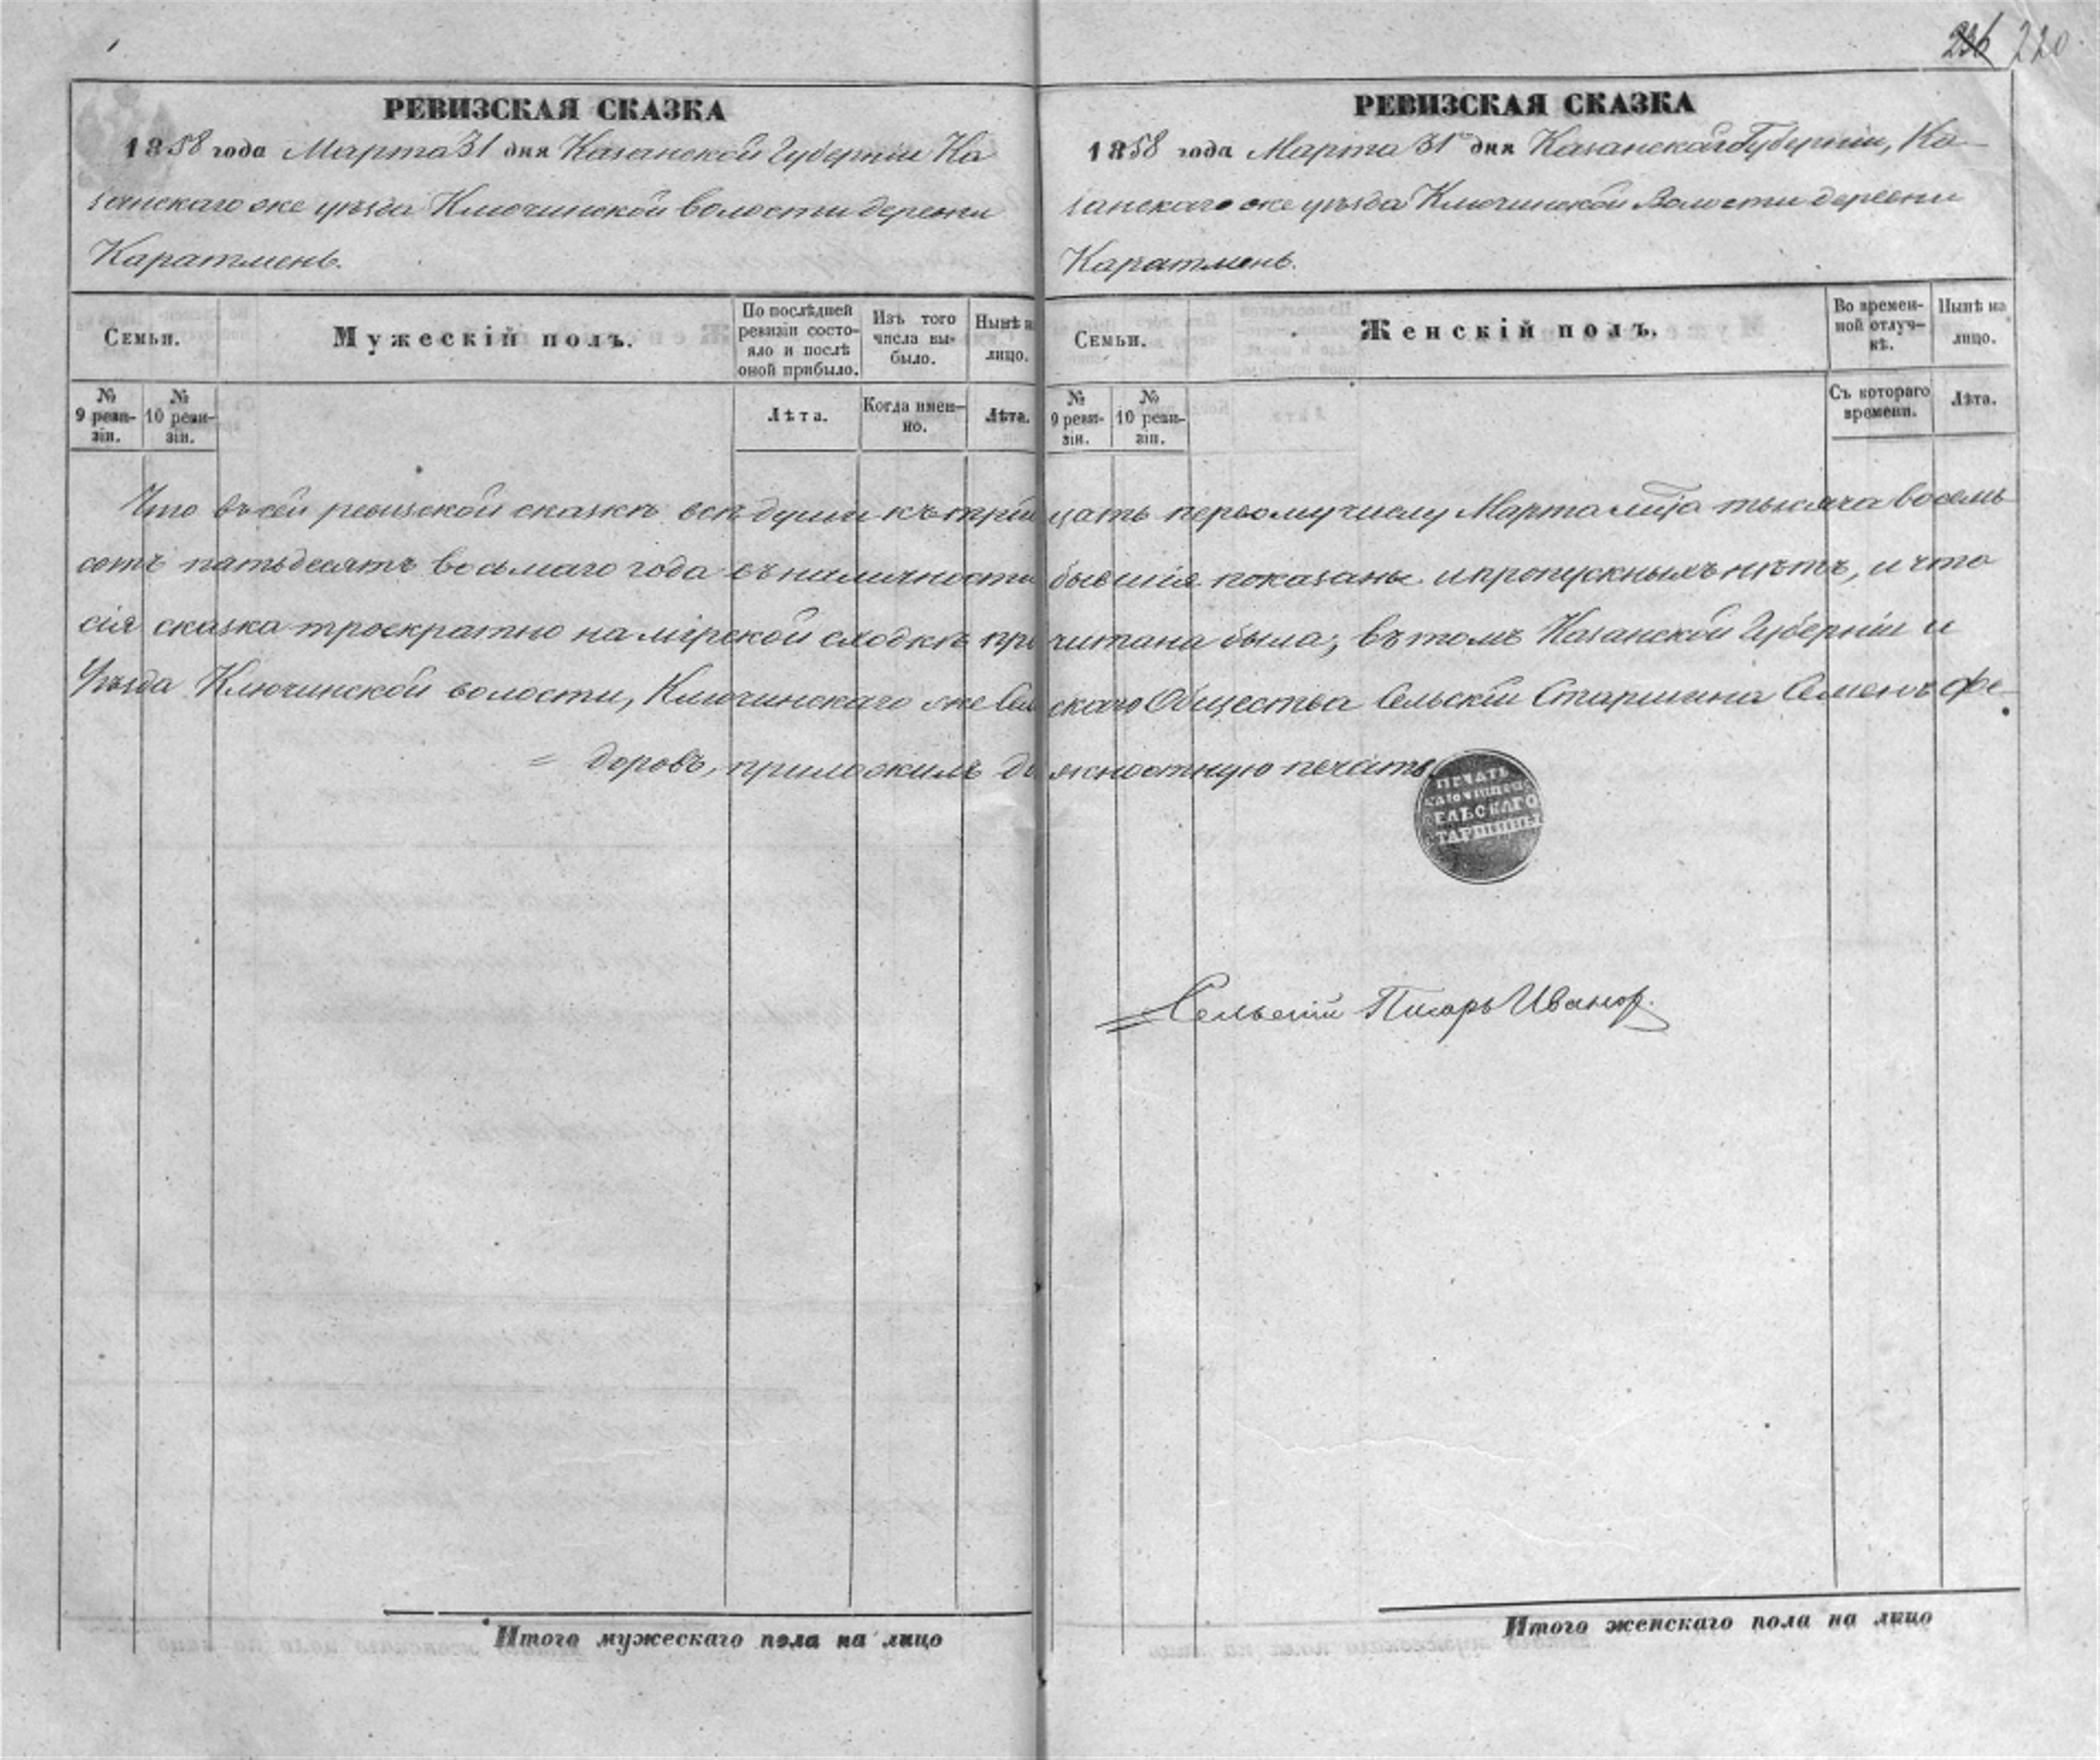 236 220.
РЕВИЗСКАЯ СКАЗКА
1858 года Марта 31 дня Казанской Губерніи Ка
занскаго же уѣзда Ключинской волости деревни
Каратмень.
Семьи.
Мужескій полъ.
По послѣдней ревизіи состояло и послѣ оной прибыло.
Изъ того числа выбыло.
Нынѣ на лицо.
№ 9 ревизіи.
№ 10 ревизіи.
Лѣта.
Когда именно.
Лѣта.
РЕВИЗСКАЯ СКАЗКА
1858 года Марта 31го дня Казанской Губерніи, Ка-
занскаго же уѣзда Ключинской Волости деревни
Каратмень.
Семьи.
Женскій полъ.
Во временной отлучкѣ.
Нынѣ на лицо.
№ 9 ревизіи.
№ 10 ревизіи.
Съ котораго времени.
Лѣта.
Что въ сей ревизской сказкѣ всѣ души къ тридцать первому числу Марта мѣсяца тысяча восемь
сотъ пятьдесятъ восьмаго года въ наличности бывшія показаны и пропускныхъ нѣтъ, и что
сія сказка троекратно на мірской сходкѣ прочитана была; въ томъ Казанской Губерніи и
Уѣзда Ключинской волости, Ключинскаго же Сельскаго Общества Сельскій Старшина Семенъ Фе-
= доровъ, приложилъ должностную печать.
ПЕЧАТЬ
КЛЮЧИНСК
СЕЛЬСКАГО
СТАРШИНЫ
Сельскій Писарь Иванов.
Итого мужескаго пола на лицо
Итого женскаго пола на лицо